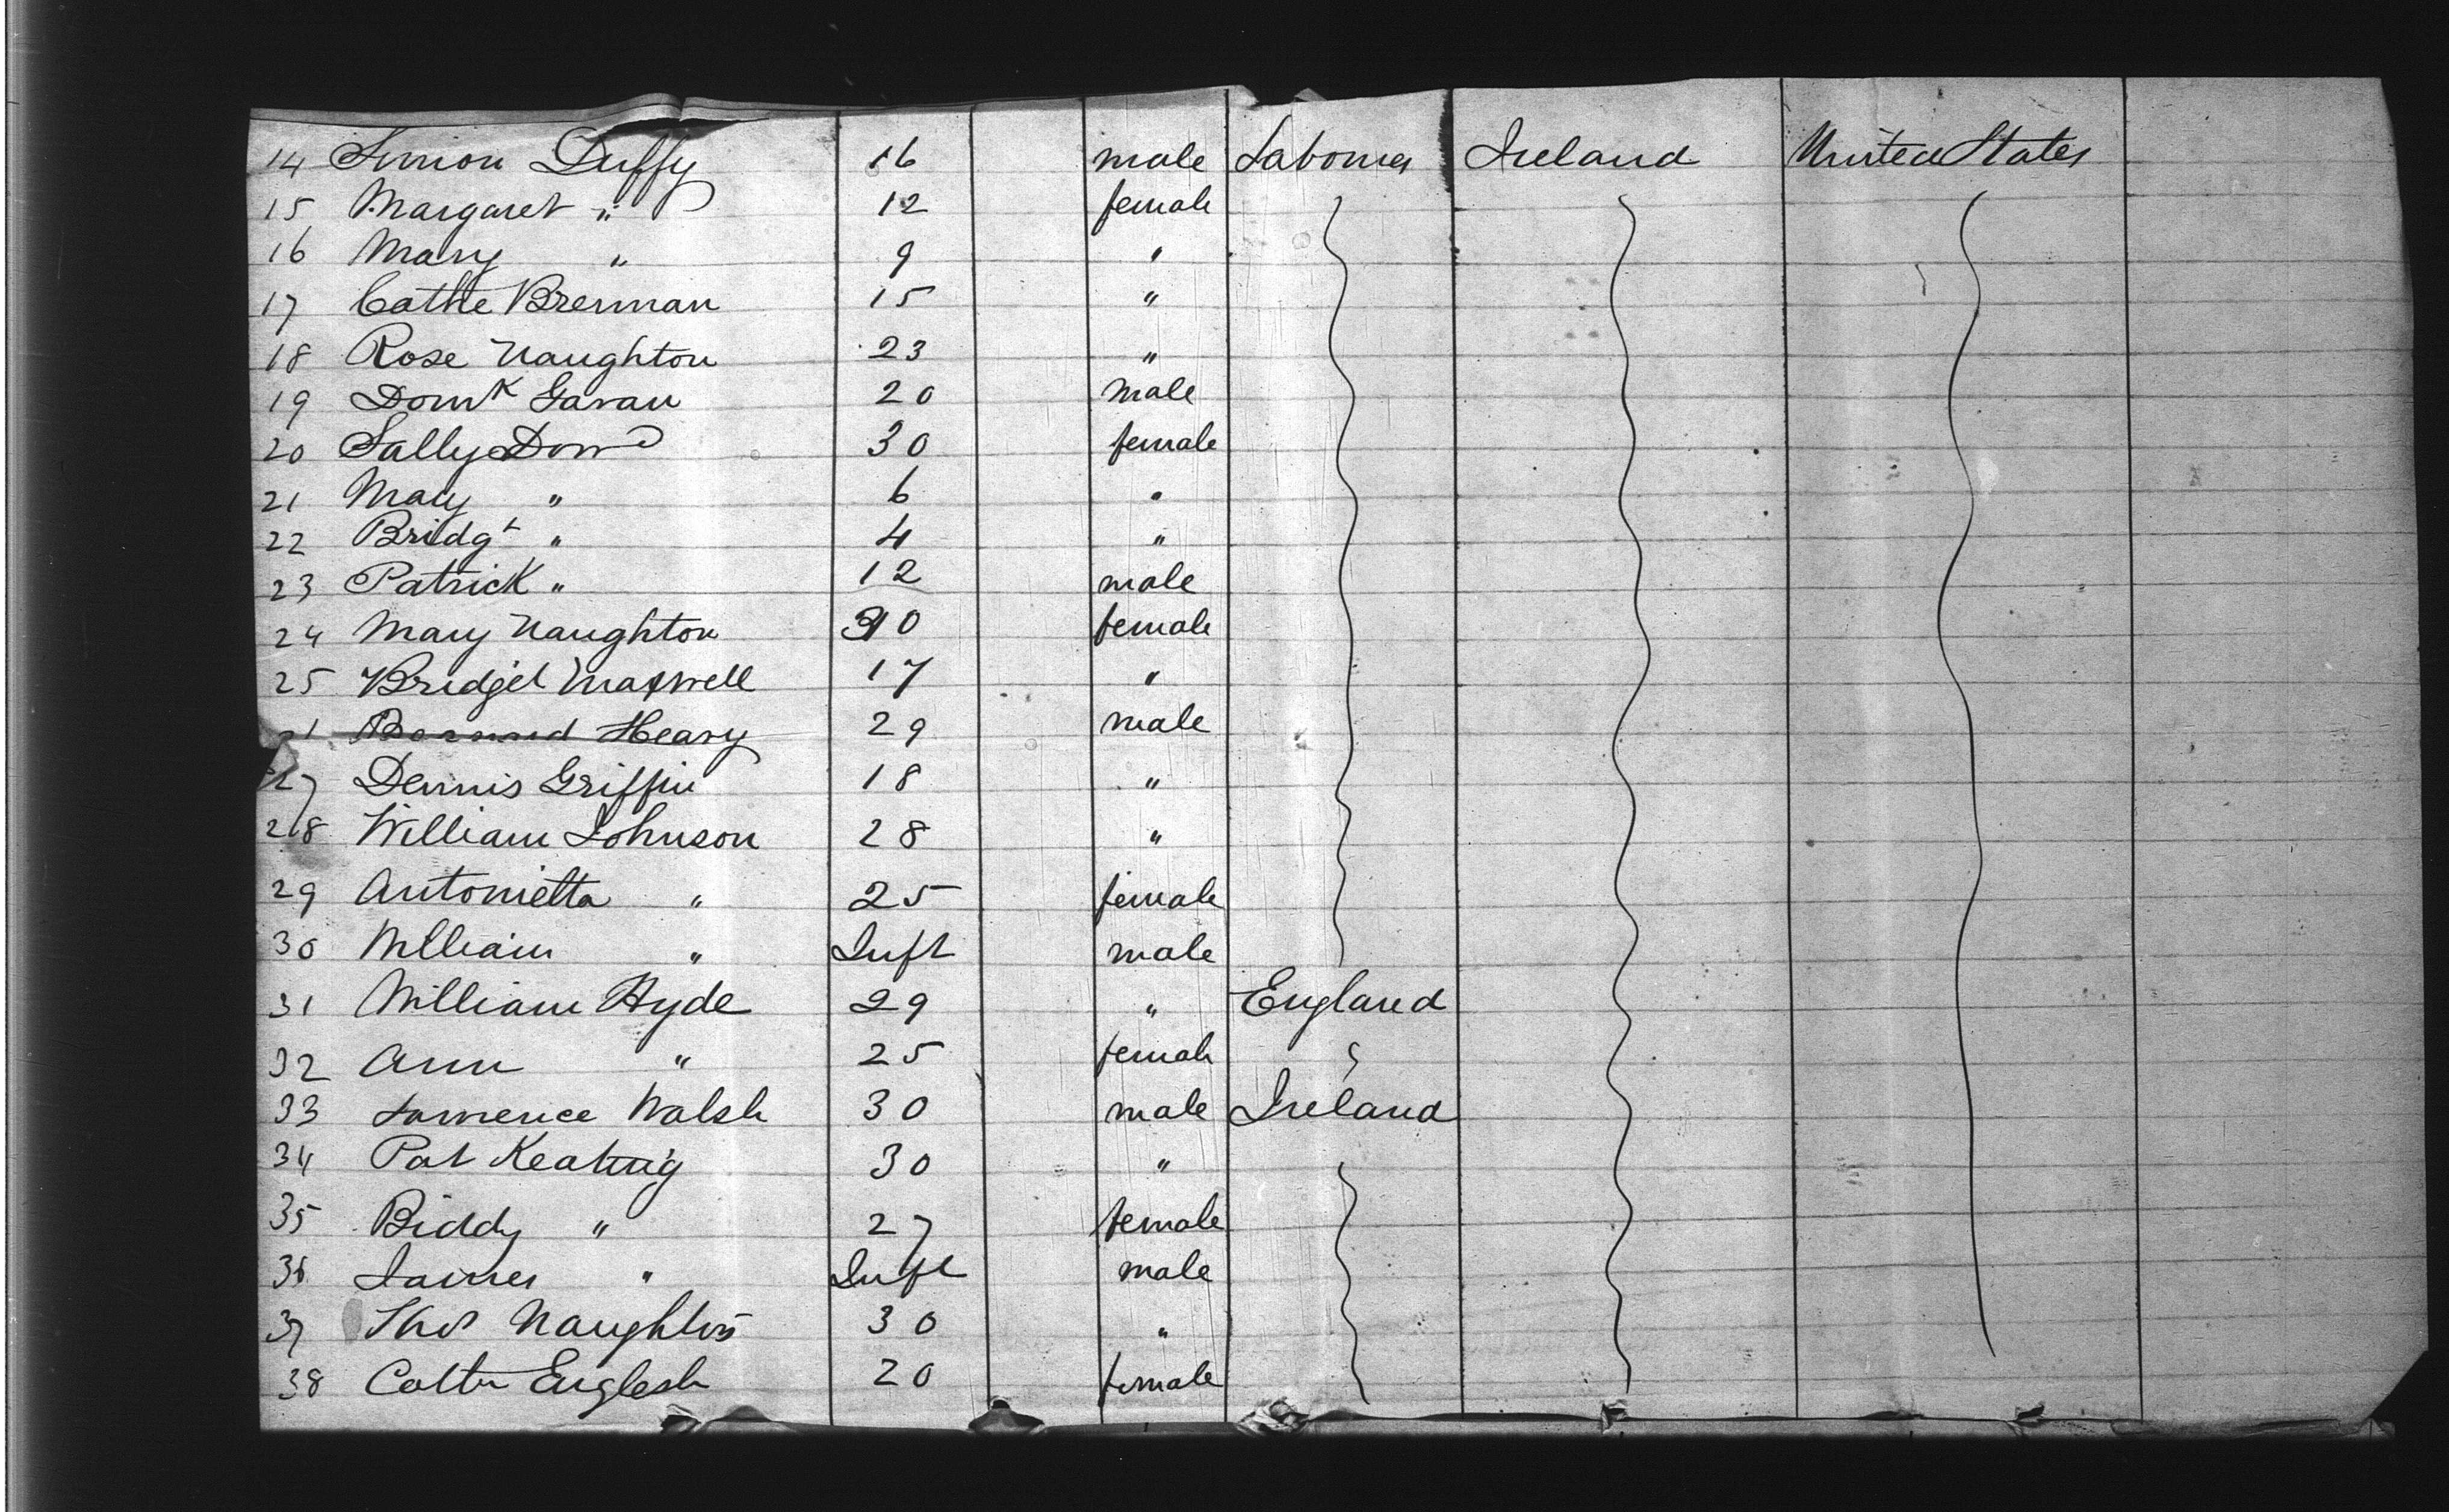 14 Simon Duffy 16 male Laborer Ireland United States
15 Margaret " 12 female
16 Mary " 9 "
17 Cathe Brennan 15 "
18 Rose Naughton 23 "
19 Domk Gavan 20 male
20 Sally Dowd 30 female
21 Mary " 6 "
22 Bridgt " 4 "
23 Patrick " 12 male
24 Mary Naughton 30 female
25 Bridget Maxwell 17 "
Bernard Heavy 29 male
27 Dennis Griffin 18 "
28 William Johnson 28 "
29 Antonietta " 25 female
30 William " Inft male
31 William Hyde 29 " England
32 Ann " 25 female
33 Lawrence Walsh 30 male Ireland
34 Pat Keating 30 "
35 Biddy " 27 female
36 James " Inft male
37 Thos Naughton 30 "
38 English 20 female